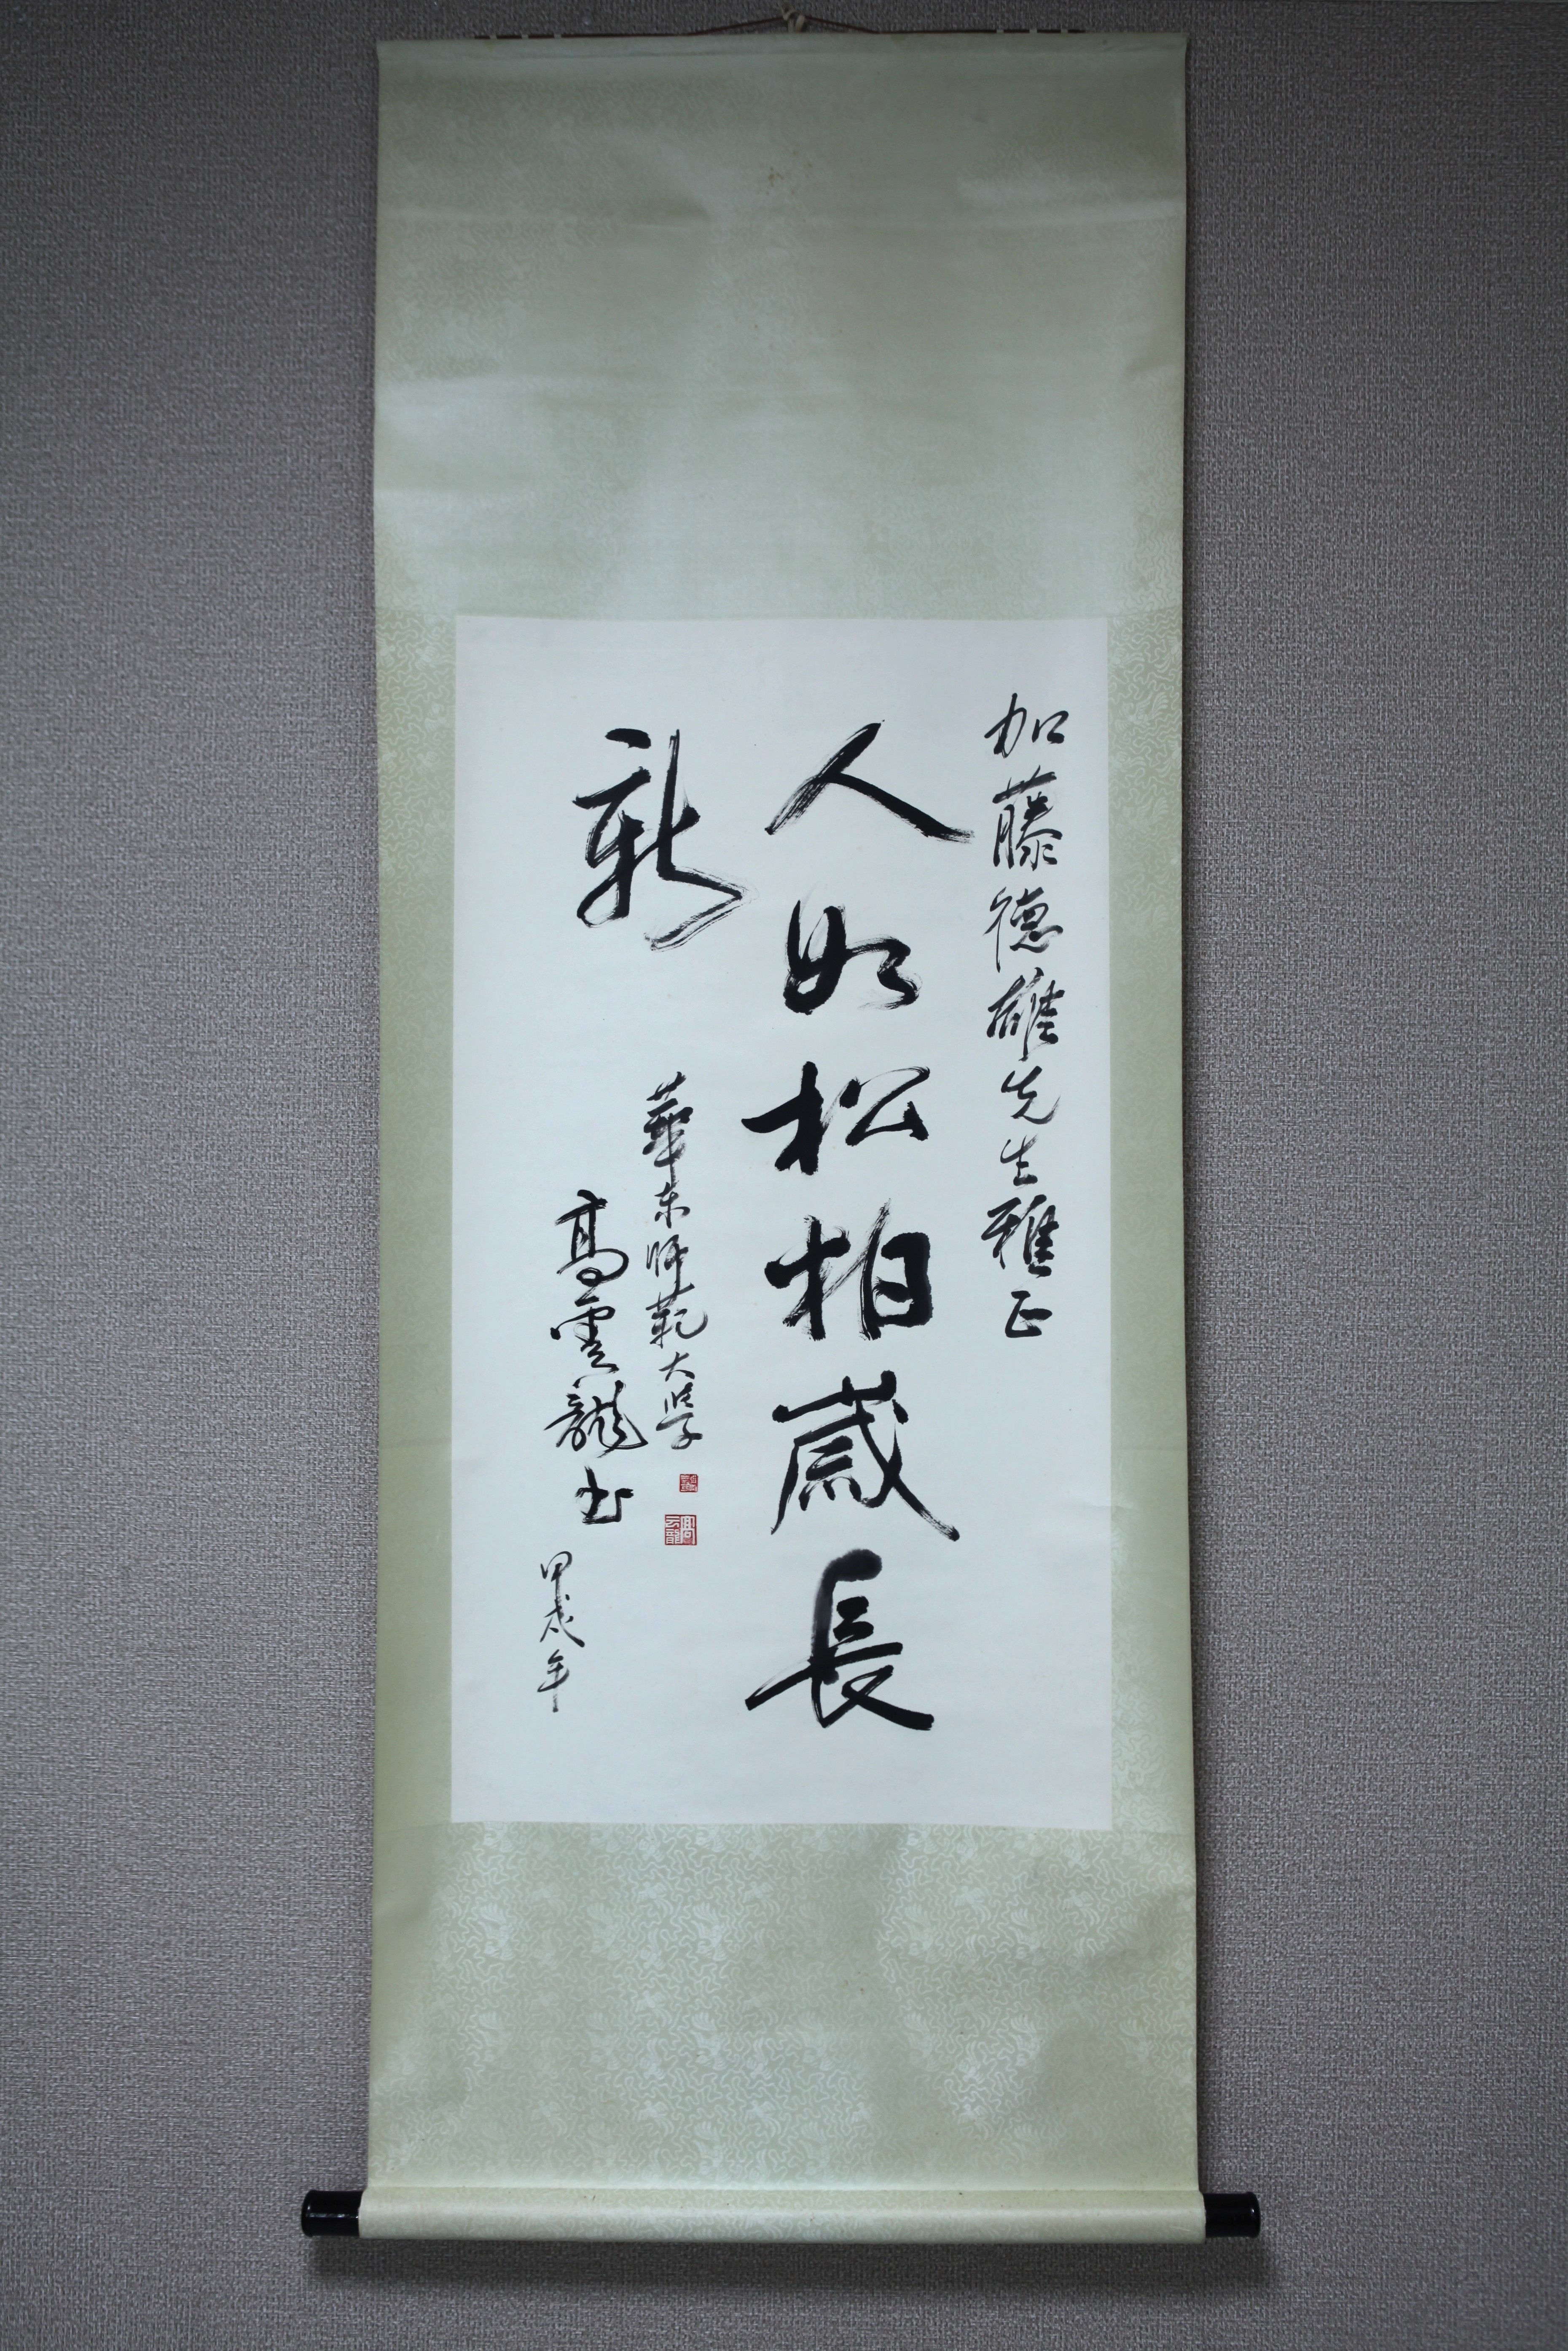 加藤德雄先生雅正
人如松柏歲長
新
華东师範大學
高雲龍书
甲戌年
高云龍